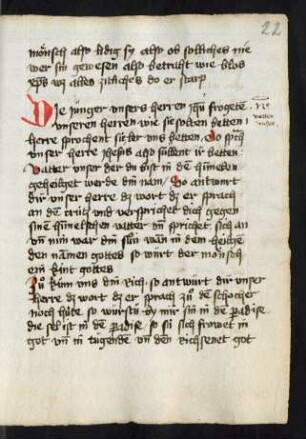 22
mönsch also lidig sy also ob solliches nie
wer sin gewesen also betraht wie blos
xp̄s wz alles zitliches do er starp
Die jünger unsers herren ihū frogete
unseren herren wie sie solten betten
herre sprochent süllet uns betten So sp̄ch
unser herre ihesus also süllent ir betten
vatter unser der du bist in dē himelen
geheiliget werde din nam So antwurt
dir unser herre dz wort dz er sprach
an dē crütz und versprichet dich gegen
sinē himelschen vatter vn̄ sprichet sich an
vn̄ nim war din sün wan in dem heilige
den namen gottes so würt der mönsch
ein kint gottes
Zů kum uns din Rich so antwürt dir unser
herre dz wort dz er sprach zů dē schocher
noch hüte so würstu by mir sin in dē padise
die sel ist in dē padise so sü sich frowet in
got vn̄ in tugende vn̄ den Richsenet got